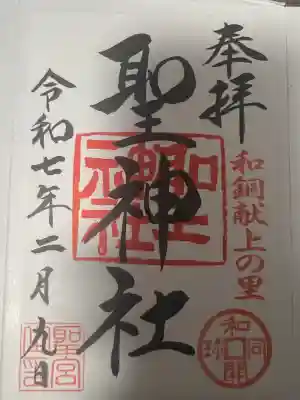 奉拝
和銅献上の里
和同開珎
聖神社
聖神社
令和七年二月九日